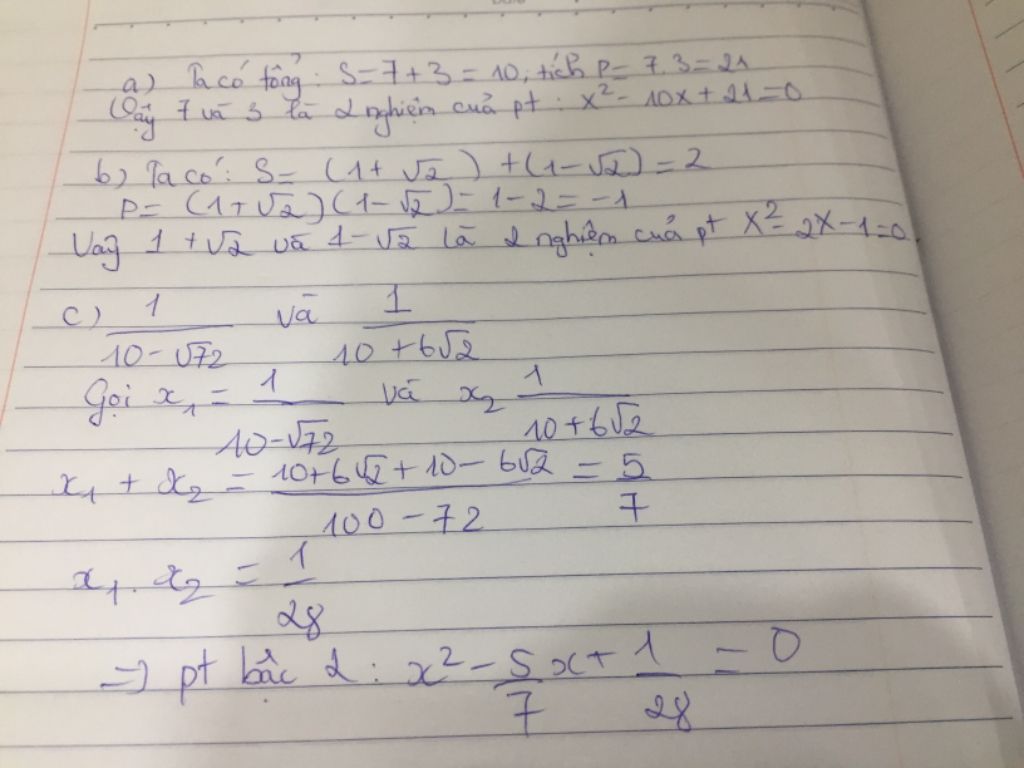 a) Ta có tổng: S = 7 + 3 = 10, tích P = 7.3 = 21
Vậy 7 và 3 là 2 nghiệm của pt: x² - 10x + 21 = 0
b) Ta có: S = (1 + √2) + (1 - √2) = 2
P = (1 + √2)(1 - √2) = 1 - 2 = -1
Vậy 1 + √2 và 1 - √2 là 2 nghiệm của pt x² - 2x - 1 = 0.
c) 1/(10 - √72) và 1/(10 + 6√2)
Gọi x₁ = 1/(10 - √72) và x₂ 1/(10 + 6√2)
x₁ + x₂ = (10 + 6√2 + 10 - 6√2)/(100 - 72) = 5/7
x₁ . x₂ = 1/28
=> pt bậc 2: x² - 5/7 x + 1/28 = 0